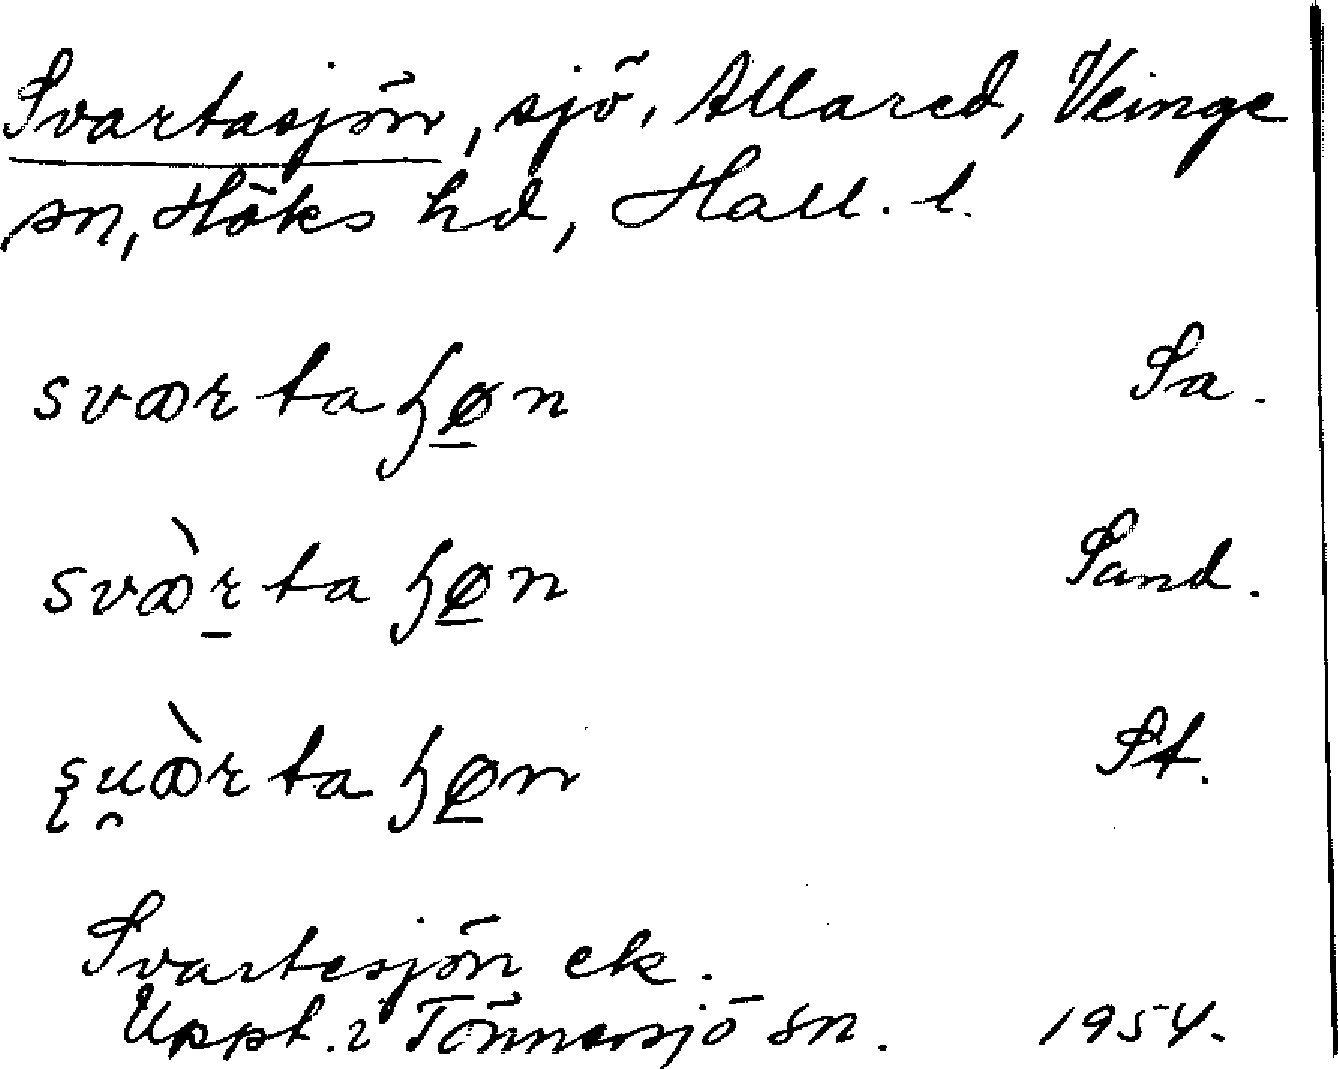 Svartasjön, sjö, Allared, Veinge
sn, Höks hd, Hall. l.
sværtaɧøn Sa.
svæ̀rtaɧøn Sand.
su̯æ̀rtaɧøn St.
Svartesjön ek.
Uppt. i Tönnersjö sn. 1954.